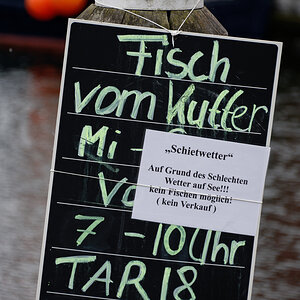 Fisch
vom Kutter
Mi -
„Schietwetter“
Auf Grund des Schlechten
Wetter auf See!!!
kein Fischen möglich!
( kein Verkauf )
7 - 10 Uhr
TAR 18